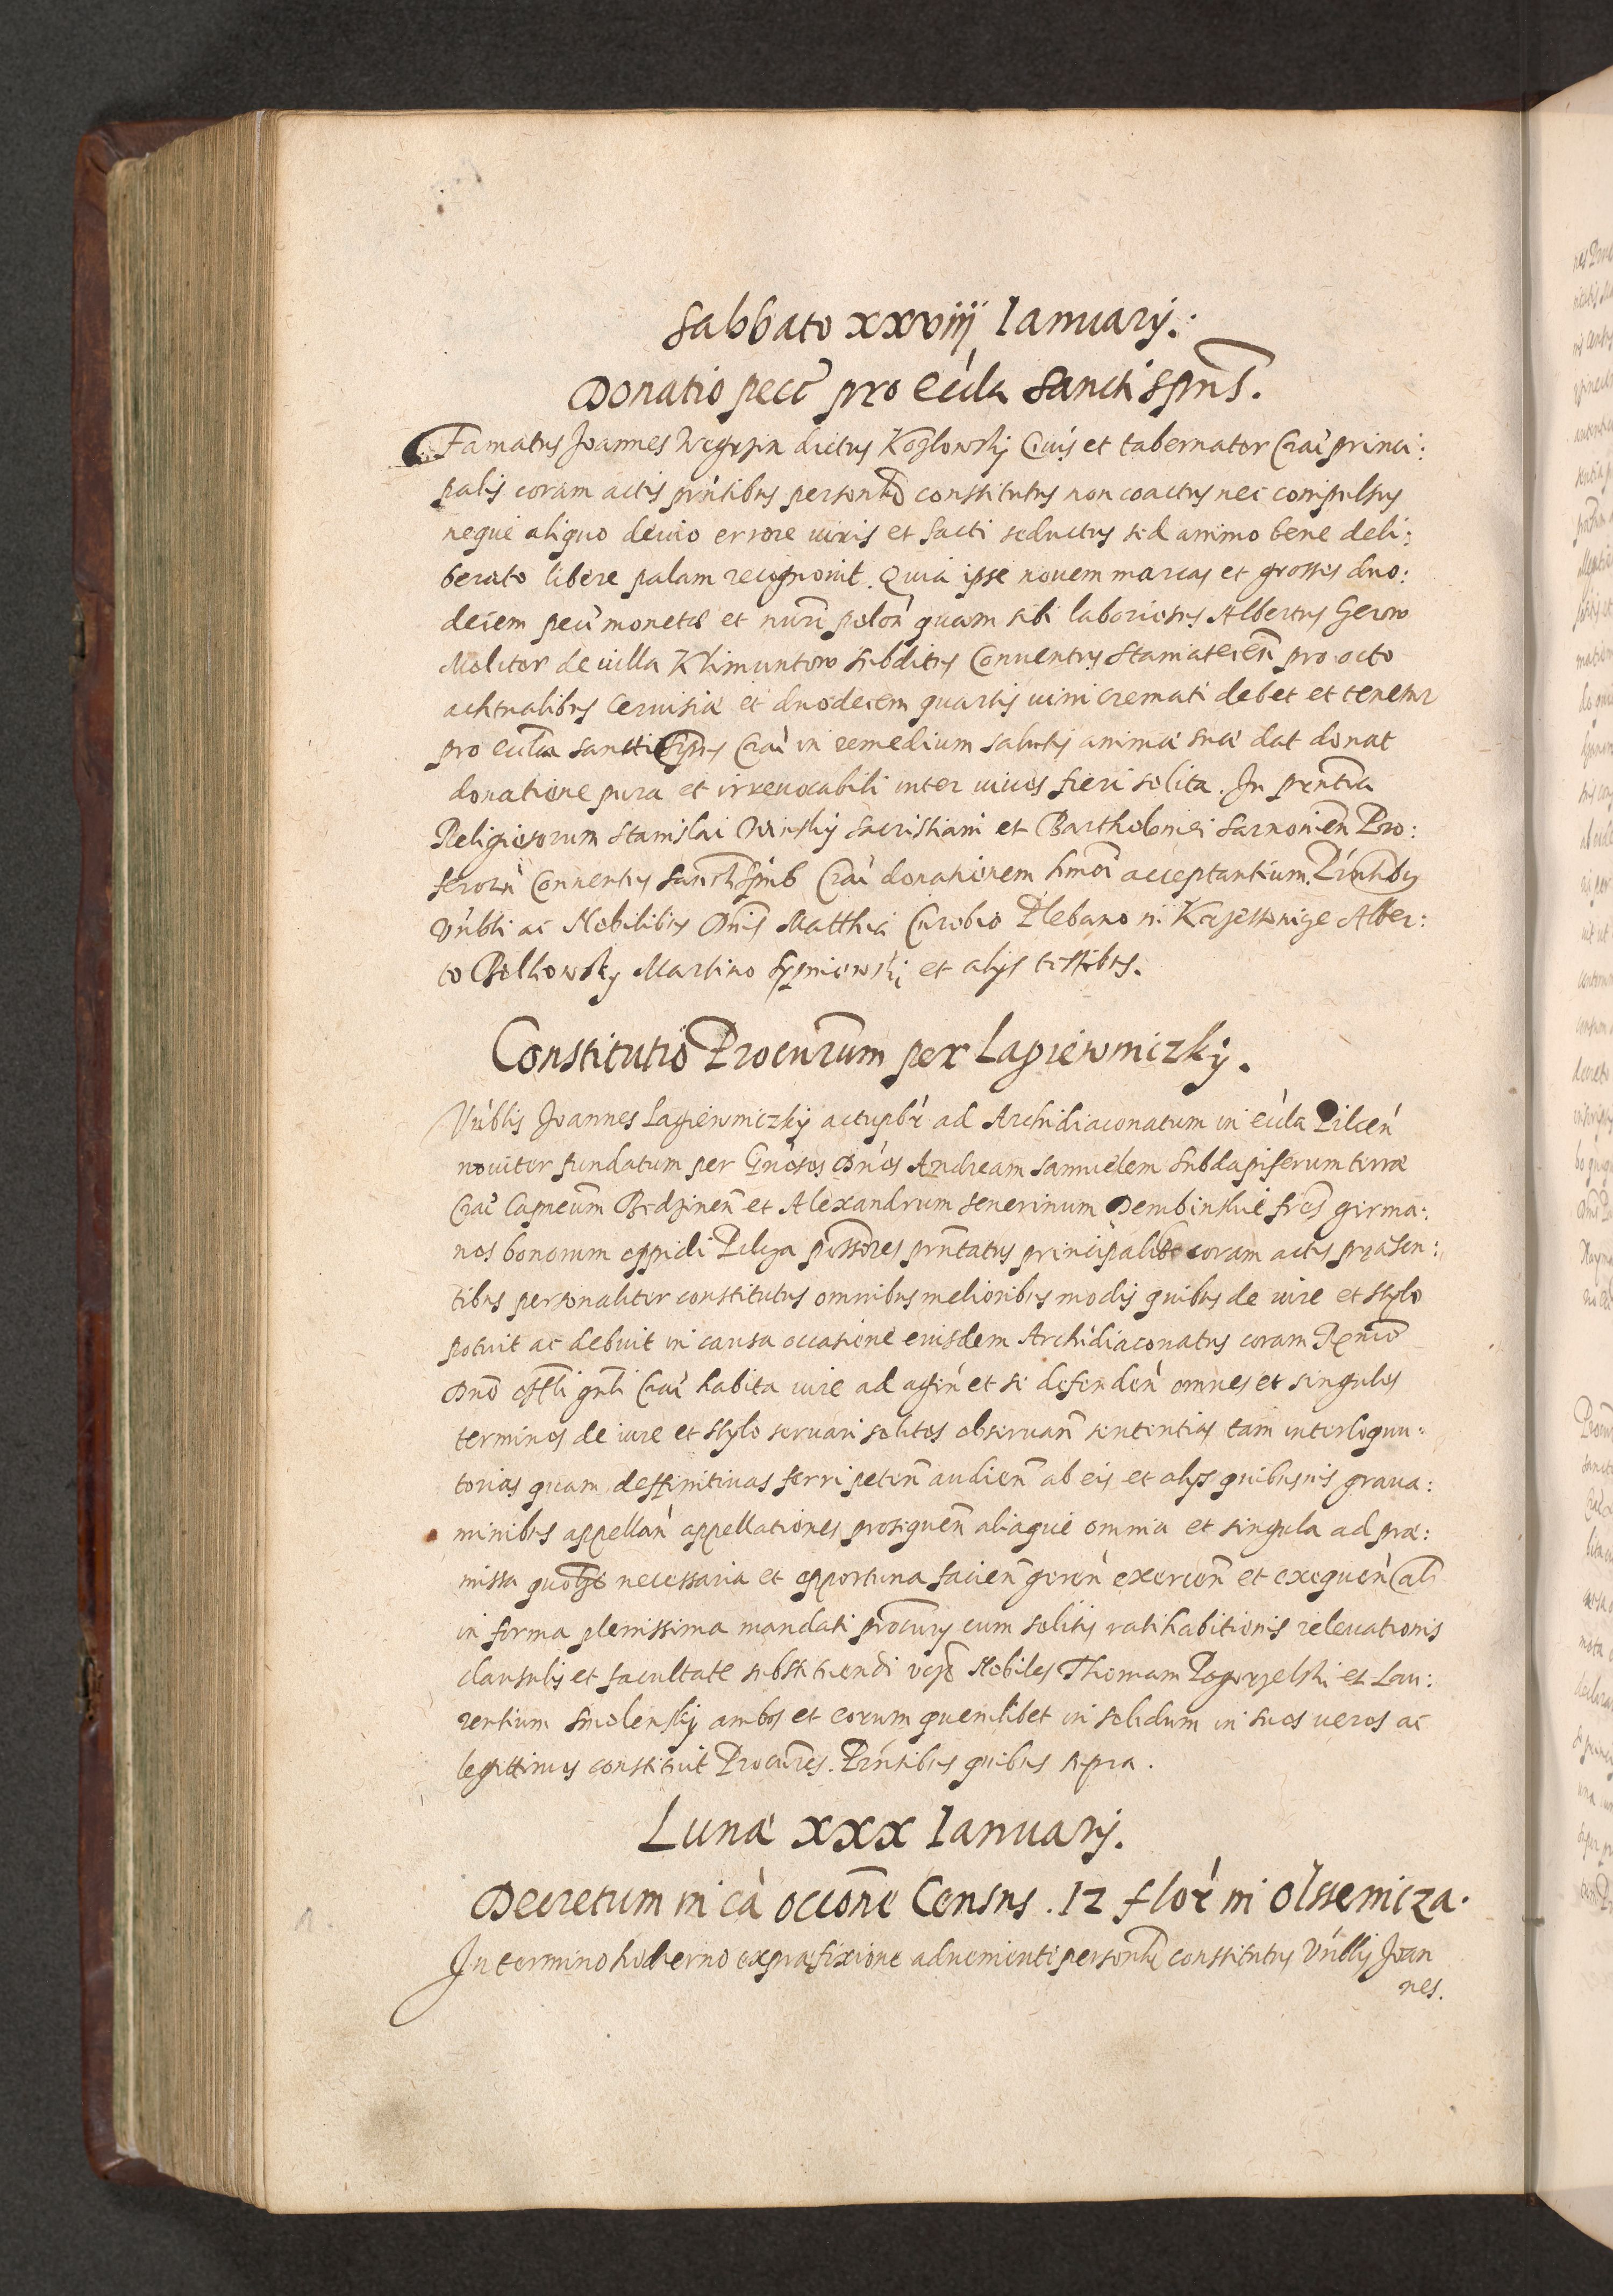 Sabbato xxviiij Ianuarij.
Donatio pecć pro Ecćla Sancti Spńs.
Famatus Joannes Wegrzin dictus Kozlowskj Ciuis et tabernator Craċ princi:
palis coram actis pŕntibus personłr constitutus non coactus nec compulsus
neque aliquo deuio errore iuris et facti seductus sed animo bene deli:
berato libere palam recognouit. Quia ipse nouem marcas et grossos duo:
decem pecć monetæ et nūri polón quam sibi laboriosus Albertus Geron
Molitor de uilla Klimuntow subditus Conuentus Staniateceñ pro octo
achtualibus Ceruisiæ et duodecem quartis uini cremati debet et tenetur
pro eccła Sancti Spńs Craċ in remedium salutis animæ suæ dat donat
donatione pura et irreuocabili inter uiuos fieri solita. In pñntia
Religiosorum Stanislai Sacristiani et Bartholomei Sarnouieñ Pro:
fessorū Conuentus Sancti Spńs Craċ donationem hmoi acceptantium. Pŕntibus
Vńbli ac Nobilibus Dńis Matthia Curobio Plebano in Krzessowice Alber:
to Polkowsky Martino et alijs testibus.
Constitutio Procurum per Lagiewniczkij.
Vńblis Joannes Lagiewniczkij actupbŕ ad Archidiaconatum in eccła Pilceń
nouiter fundatum per Gńosos Dńos Andream Samuelem Subdapiferum terræ
Craċ Capneum Bedzineñ et Alexandrum Seuerinum Dembinskie frēs germa:
nos bonorum oppidi Pilcza pōssores pŕntatus principalis coram actis præsen:
tibus personaliter constitutus omnibus melioribus modis quibus de iure et stylo
potuit ac debuit in causa occasione eiusdem Archidiaconatus coram Rńdo
Dńo offłi gńli Craċ habita iure ad ageń et se defendeń omnes et singulos
terminos de iure et stylo seruari solitos obseruañ sententias tam interloquu:
torias quam deffinitiuas ferri peteñ audieñ ab eis et alijs quibusuis graua:
minibus appellań appellationes prosequeñ aliaque omnia et singula ad præ:
missa quōlt necessaria et opportuna facieñ gereń exerceñ et exequeń ałs
in forma plenissima mandati procurij cum solitis ratihabitionis releuationis
clausulis et facultate substituendi Nobiles Thomam Pogorzelski et Lau:
rentium Smolenskj ambos et eorum quemlibet in solidum in suos ueros ac
legittimos constituit Procures. Pŕntibus quibus supra.
Lunæ xxx Ianuarij.
Decretum in cá occōne Census .12 flor in Olssenicza.
In termino hodierno ex præfixione adueniente personłr constitutus Vńblis Joan
nes.